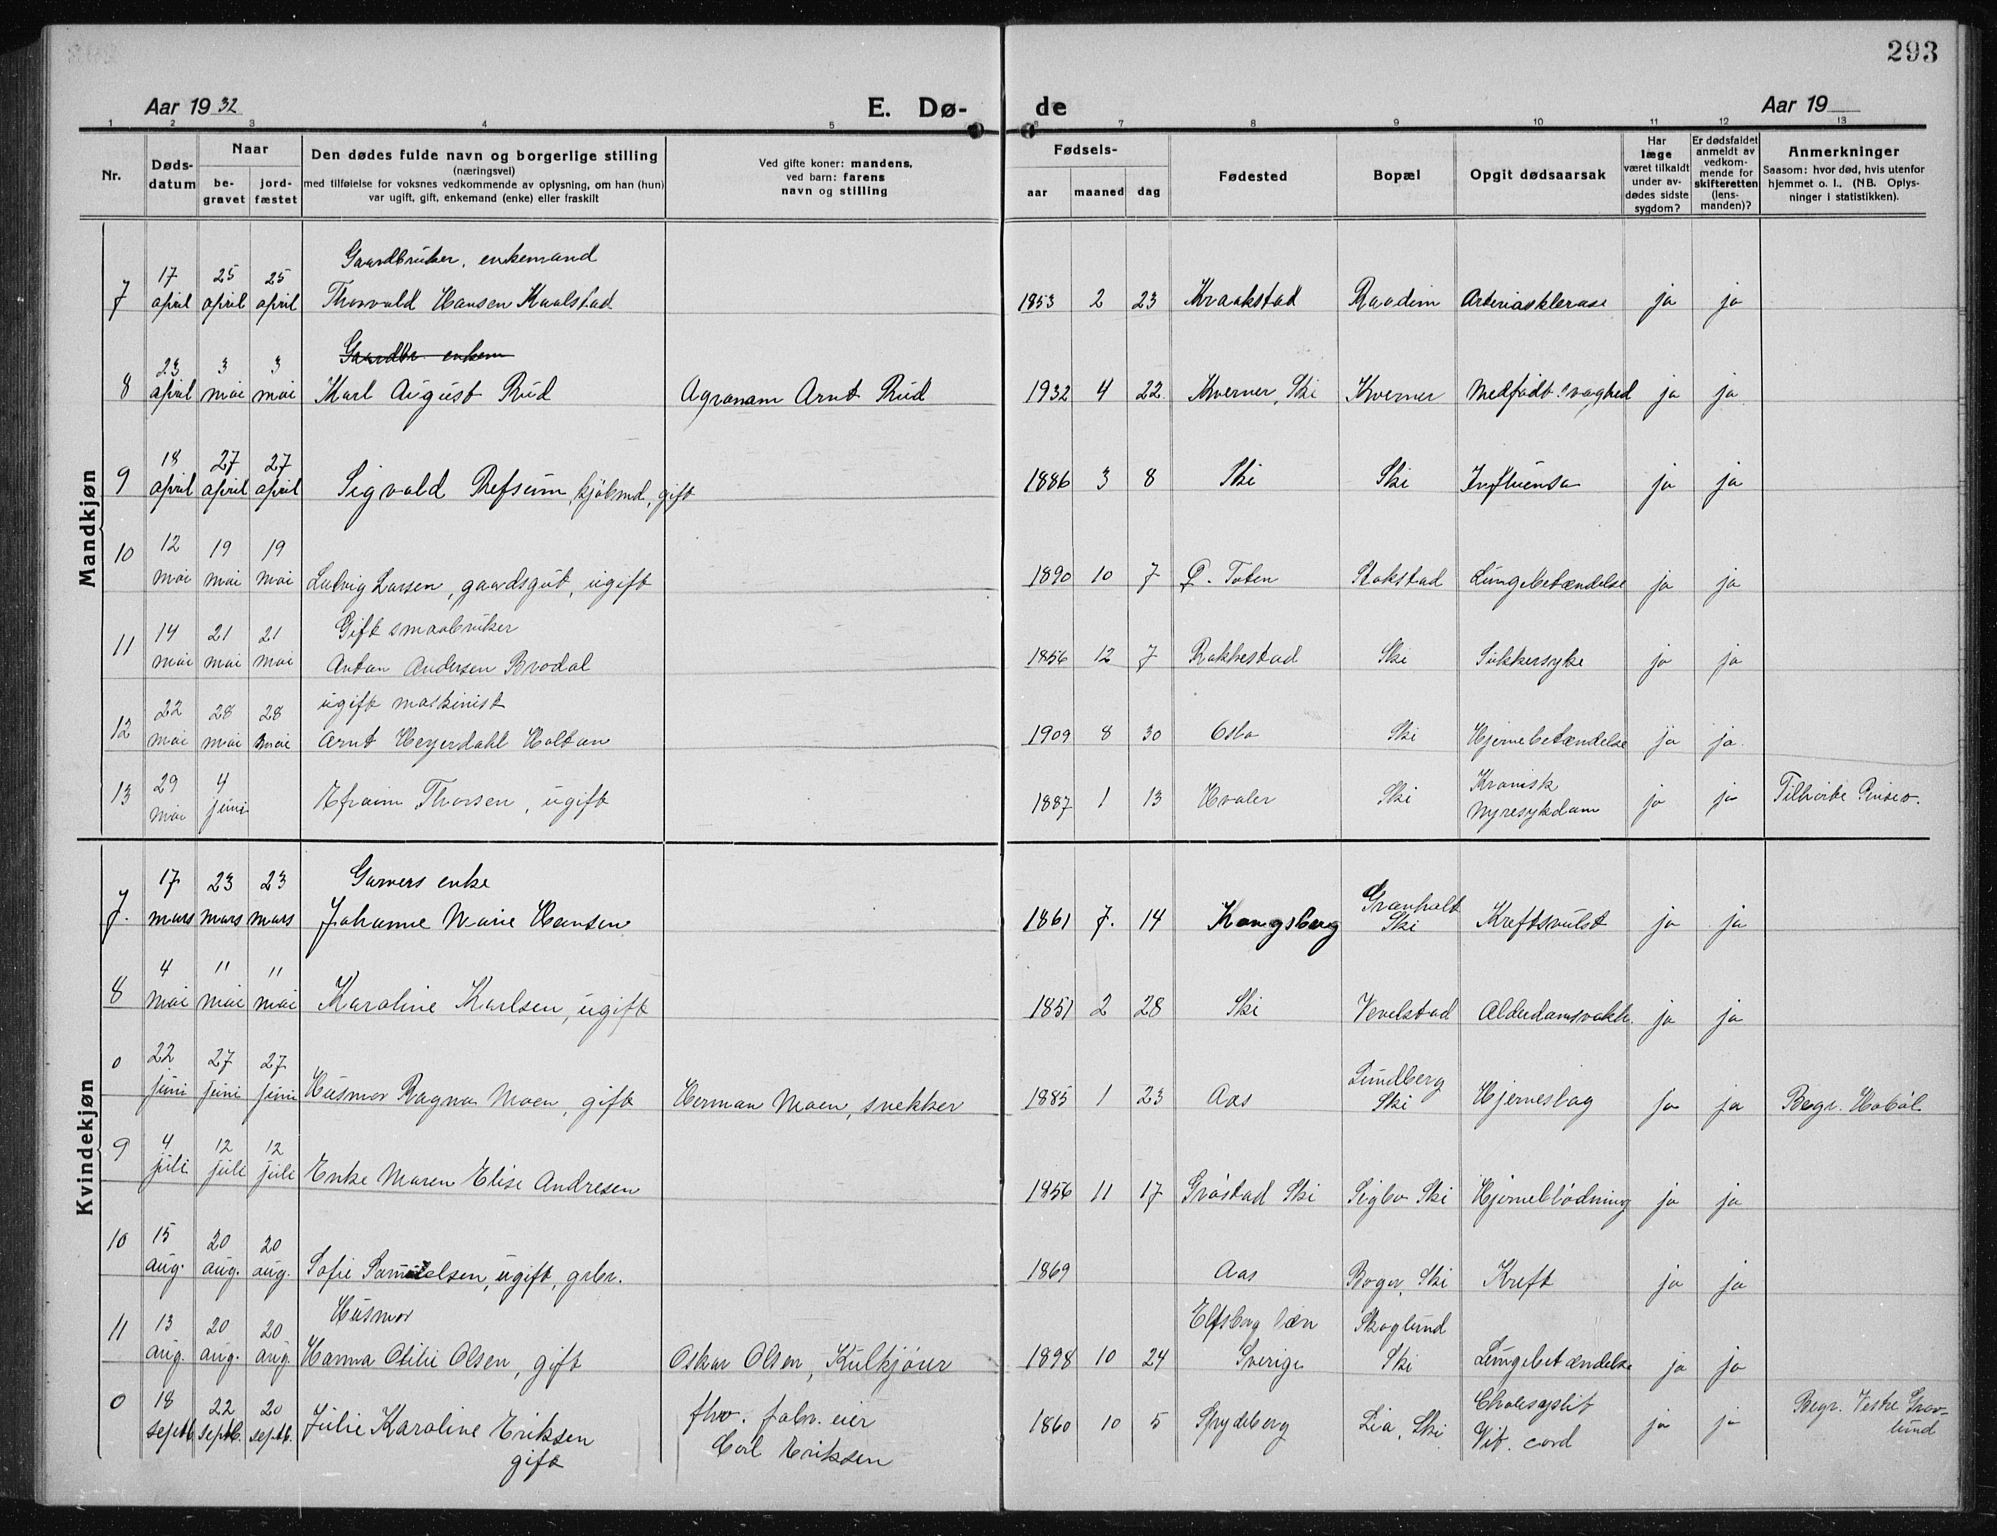 293
Aar 1932
E. Dø-
de
Aar 19
1 2 3 4 5 6 7 8 9 10 11 12 13
Nr.
Døds-
datum
Naar
be-
gravet
jord-
fæstet
Den dødes fulde navn og borgerlige stilling
(næringsvei)
med tilføielse for voksnes vedkommende av oplysning, om han (hun)
var ugift, gift, enkemand (enke) eller fraskilt
Ved gifte koner: mandens,
ved barn: farens
navn og stilling
Fødsels-
aar maaned dag
Fødested
Bopæl
Opgit dødsaarsak
Har
læge
været tilkaldt
under av-
dødes sidste
sygdom?
Er dødsfaldet
anmeldt av
vedkom-
mende for
skifteretten
(lens-
manden)?
Anmerkninger
Saasom: hvor død, hvis utenfor
hjemmet o. l., (NB. Oplys-
ninger i statistikken).
Mandkjøn
17 25 25 Gaardbruker, enkemand
7 april april april Thorvald Hansen Kaalstad 1853 2 23 Kraakstad Raadim Arteriosklerose ja ja
23 3 3 Gaardbr. enkem
8 april mai mai Karl August Rud Agronom Arnt Rud 1932 4 22 Kverner, Ski Kverner Medfödt svaghed ja ja
18 27 27
9 april april april Sigvald Refsum, kjöbmd, gift 1886 3 8 Ski Ski Influensa ja ja
12 19 19
10 mai mai mai Ludvig Larsen, gaardsgut, ugift 1890 10 7 Ø. Toten Stokstad Lungebetændelse ja ja
14 21 21 Gift smaabruker
11 mai mai mai Anton Andersen Brodal 1856 12 7 Rakkestad Ski Sukkersyke ja ja
22 28 28 ugift maskinist
12 mai mai mai Arnt Heyerdahl Holtan 1909 8 30 Oslo Ski Hjernebetændelse ja ja
29 4 Kronisk
13 mai juni Efraim Thorsen, ugift 1887 1 13 Hvaler Ski Nyresykdom ja ja Tilhörte Pinsev.
Kvindekjøn
17 23 23 Garvers enke Granholt
7. mars mars mars Johanne Marie Hansen 1861 7. 14 Kongsberg Ski Kreftsvulst ja ja
4 11 11
8 mai mai mai Karoline Karlsen, ugift 1851 2 28 Ski Vevelstad Alderdomsvakh. ja ja
22 27 27 Lundberg
0 juni juni juni Husmor Ragna Moen, gift Herman Moen, snekker 1885 1 23 Aas Ski Hjerneslag ja ja Begr. Hobøl
4 12 12
9 juli juli juli Enke Maren Elise Andresen 1856 11 17 Gröstad Ski Sigbo Ski Hjerneblödning ja ja
15 20 20
10 aug. aug. aug. Sofie Samuelsen, ugift, grbr. 1869 Aas Roger, Ski Kreft ja ja
13 20 20 Husmor Elfsborg læn Skoglund
11 aug. aug. aug. Hanna Otilie Olsen, gift Oskar Olsen, Kulkjörer 1898 10 24 Sverige Ski Lungebetændelse ja ja
18 22 20 fhv. fabr. eier Begr. Vestre Grav-
0 septb. septb. septb. Julie Karoline Eriksen Carl Eriksen 1860 10 5 Spydeberg Lia, Ski Vit. cord ja ja lund
gift